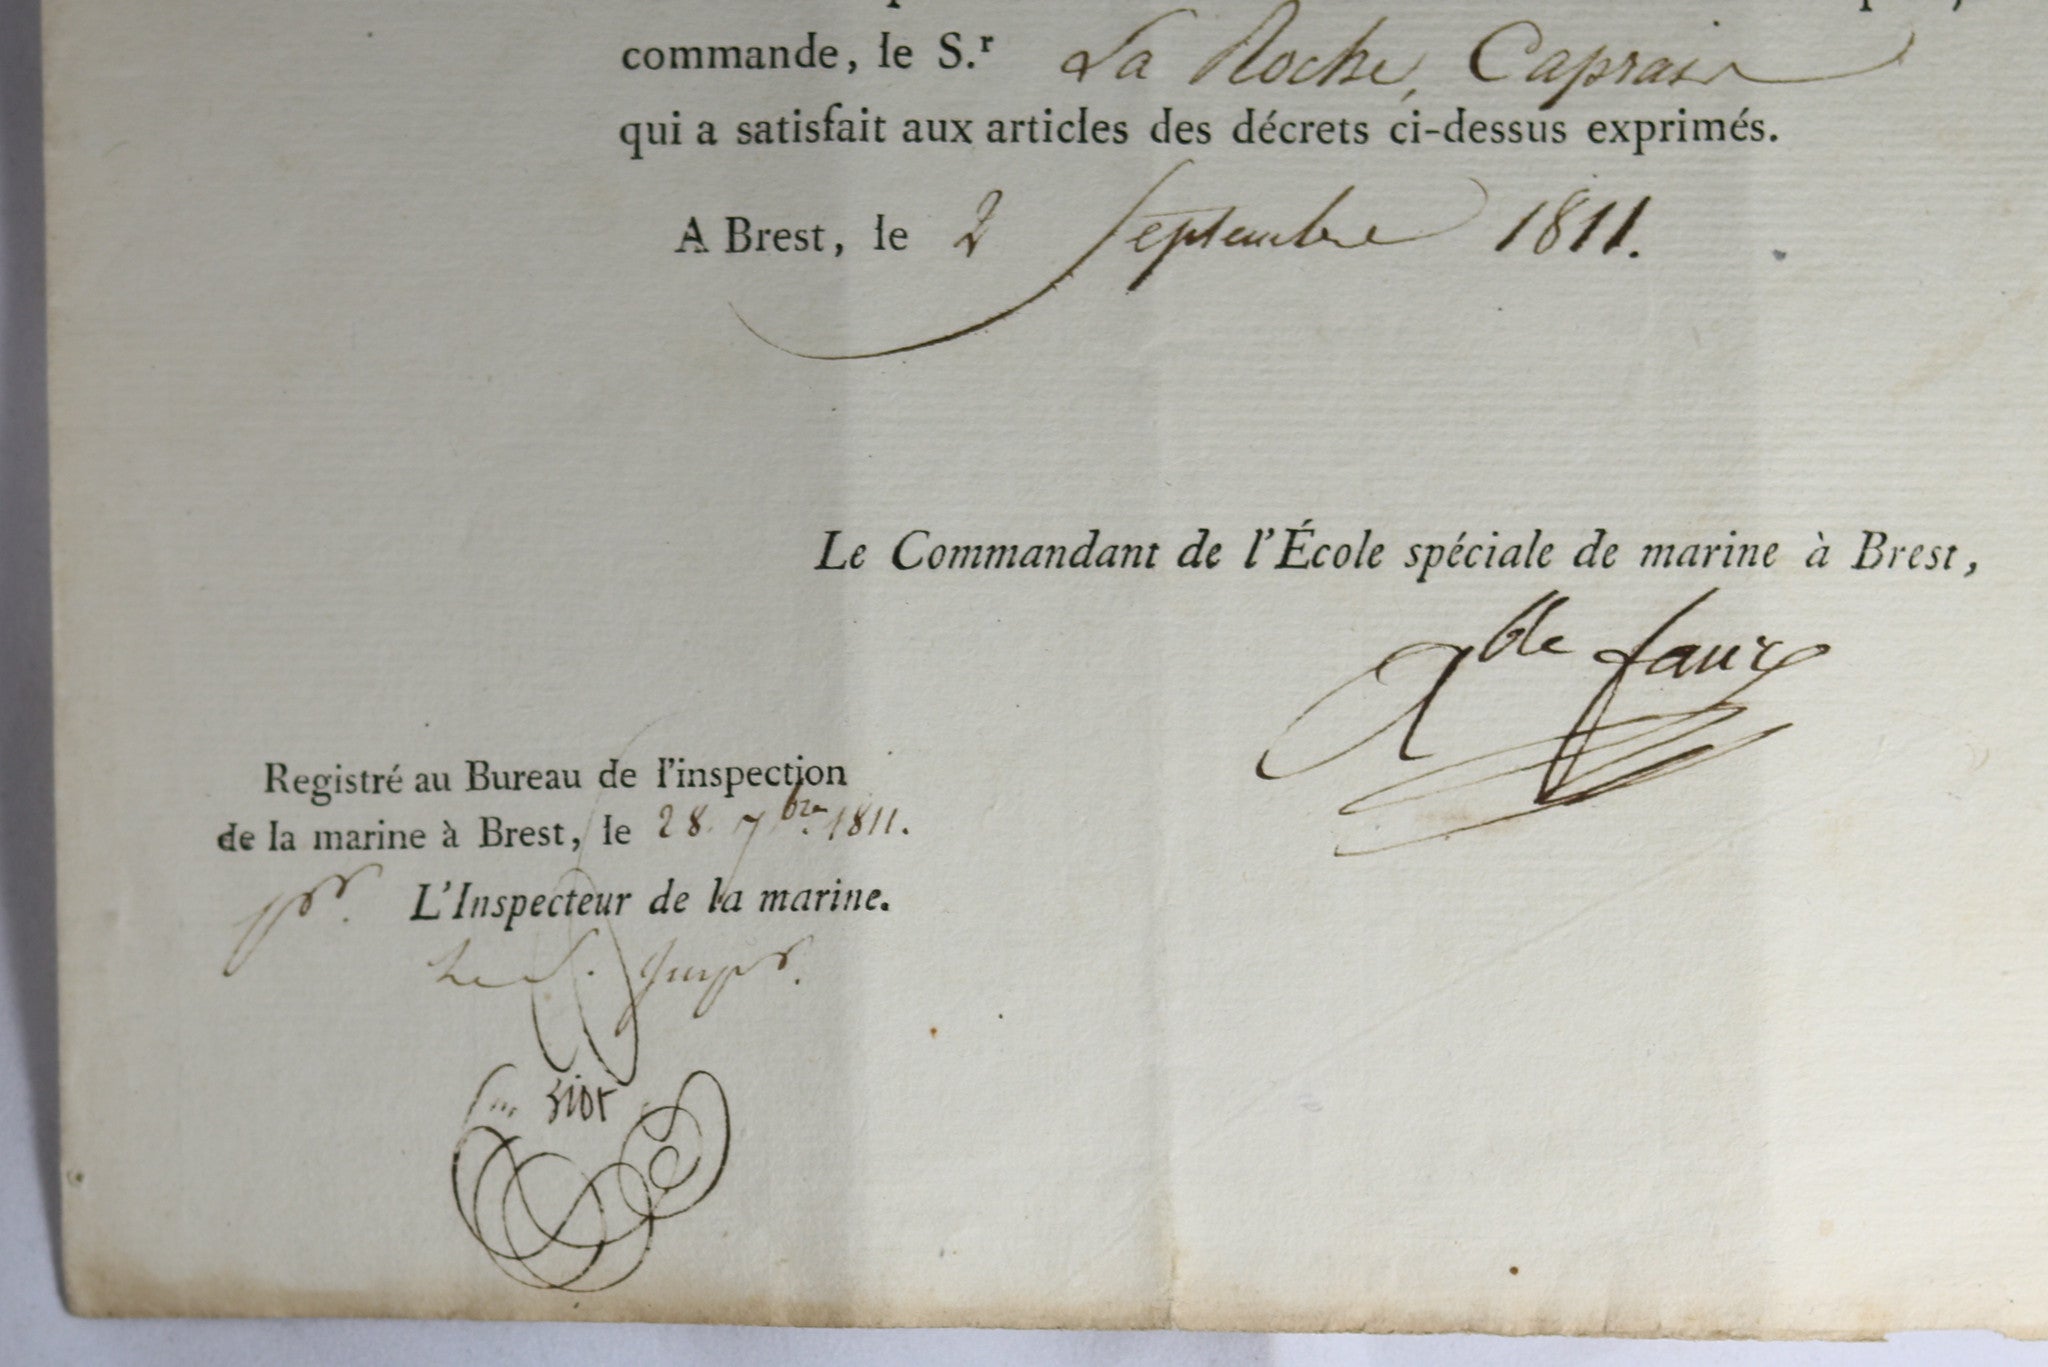 commande, le S.r La Roche, Caprais
qui a satisfait aux articles des décrets ci-dessus exprimés.
A Brest, le 2 Septembre 1811.
Le Commandant de l'École spéciale de marine à Brest,
Registré au Bureau de l'inspection
de la marine à Brest, le 28. 7bre 1811.
pr. L'Inspecteur de la marine.